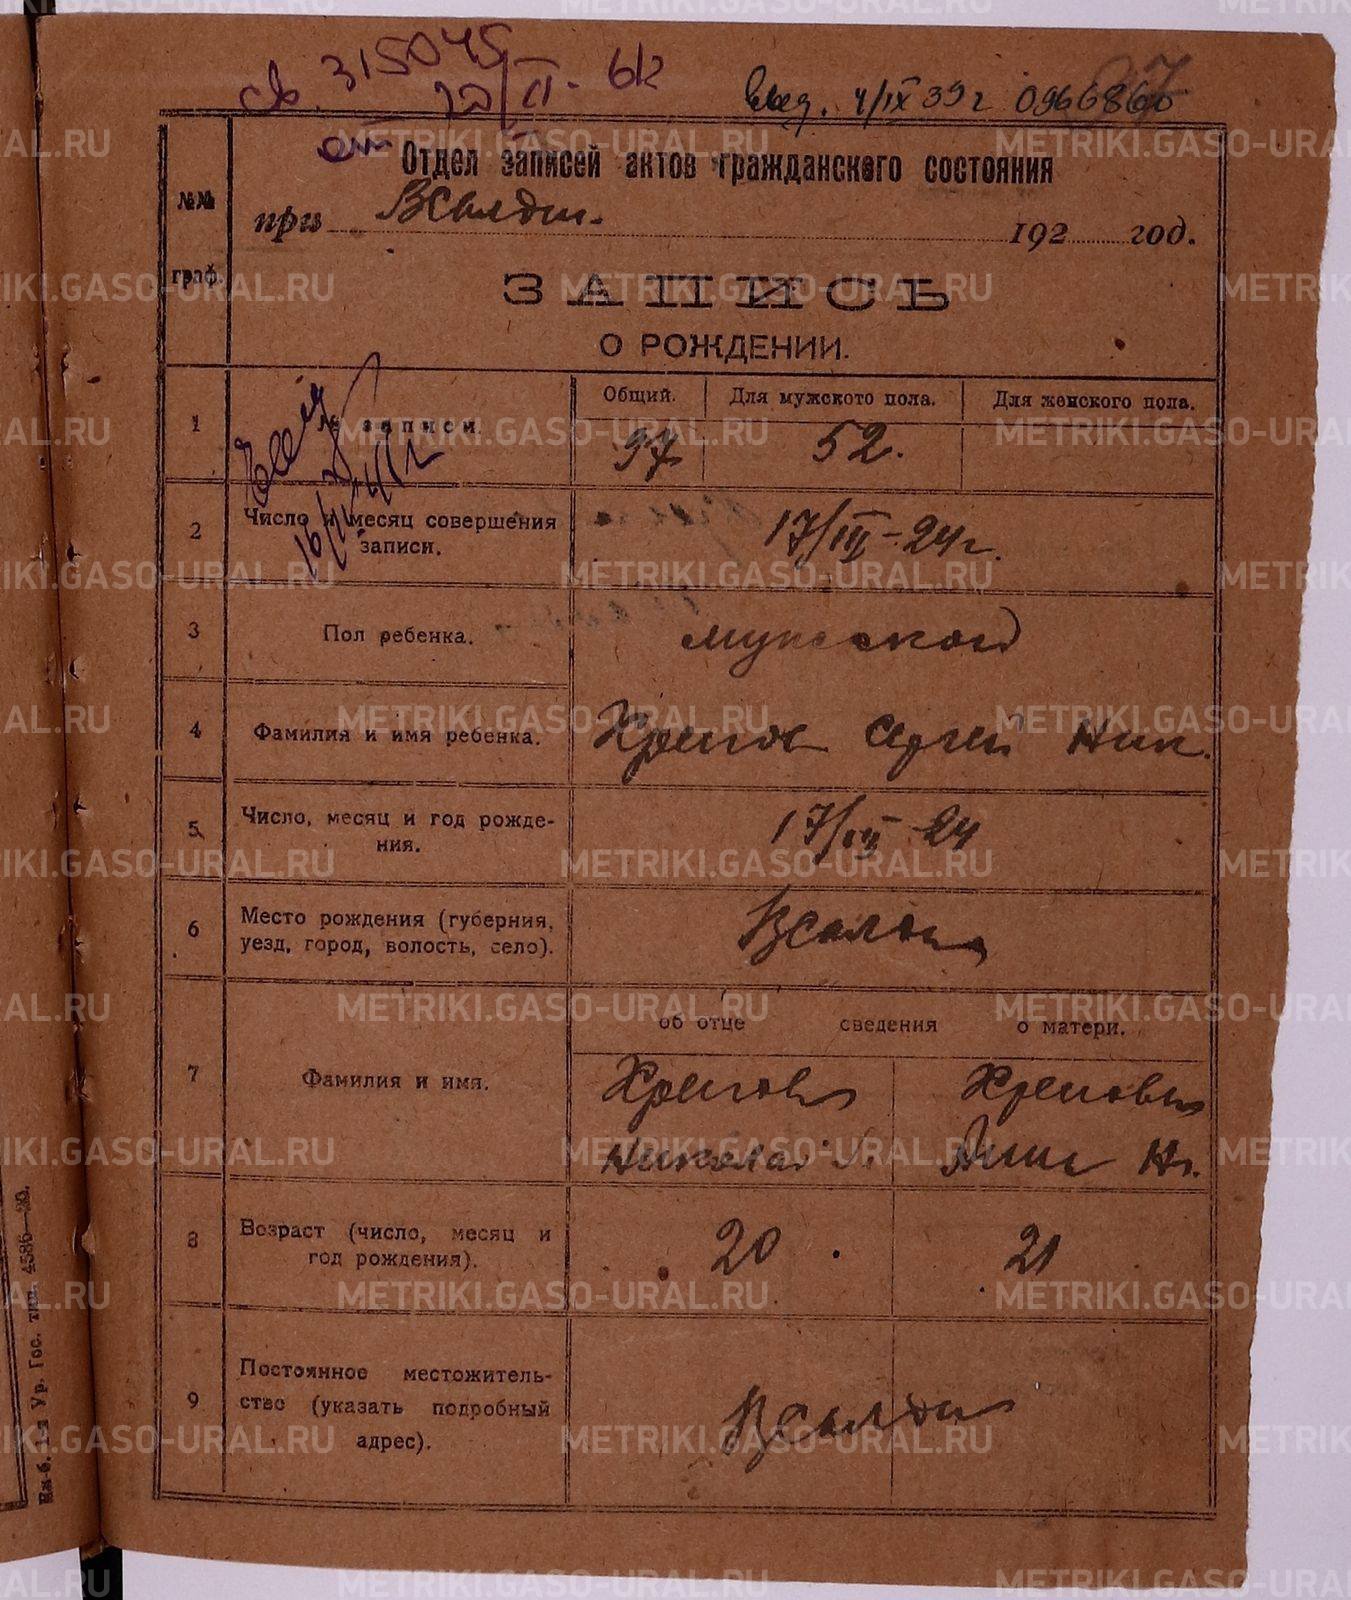 св. 315045
12/II-61г
выд. 4/IX 39г 0966860
37
Отдел записей актов гражданского состояния
№№
граф.
при ВСалди. 192 год.
ЗАПИСЬ
О РОЖДЕНИИ.
Общий. Для мужского пола. Для женского пола.
1 № записи. 97 52.
2 Число и месяц совершения
записи.
17/III-24г.
3 Пол ребенка. мужской
4 Фамилия и имя ребенка. Сергей Ник.
5 Число, месяц и год рожде-
ния.
17/III 24
6 Место рождения (губерния,
уезд, город, волость, село).
ВСалда
об отце сведения о матери.
7 Фамилия и имя.
Николай
8 Возраст (число, месяц и
год рождения).
20 21
9 Постоянное местожитель-
ство (указать подробный
адрес).
ВСалда
Ур. Гос. тип. 4586—20.
METRIKI.GASO-URAL.RU